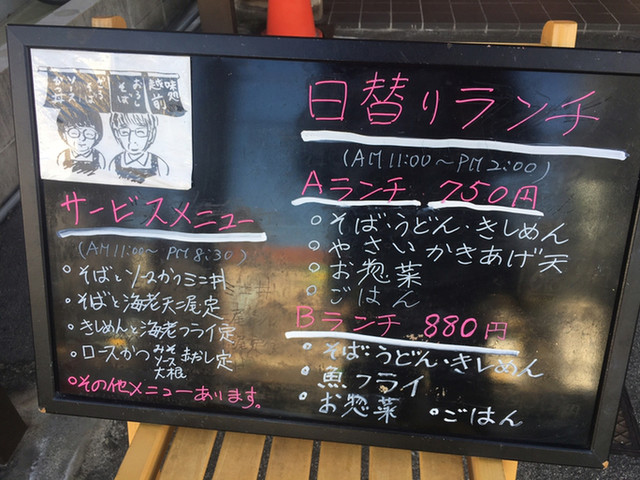 味処
越前
おろし
そば
サービスメニュー
(AM11:00〜PM8:30)
・そばとソースかつミニ丼
・そばと海老天二尾定
・きしめんと海老フライ定
・ロースかつ みそ ソース 大根 おろし定
○その他メニューあります。
日替りランチ
(AM11:00〜PM2:00)
Aランチ 750円
○そば・うどん・きしめん
○やさいかきあげ天
○お惣菜
○ごはん
Bランチ 880円
○そば・うどん・きしめん
○魚フライ
○お惣菜 ○ごはん